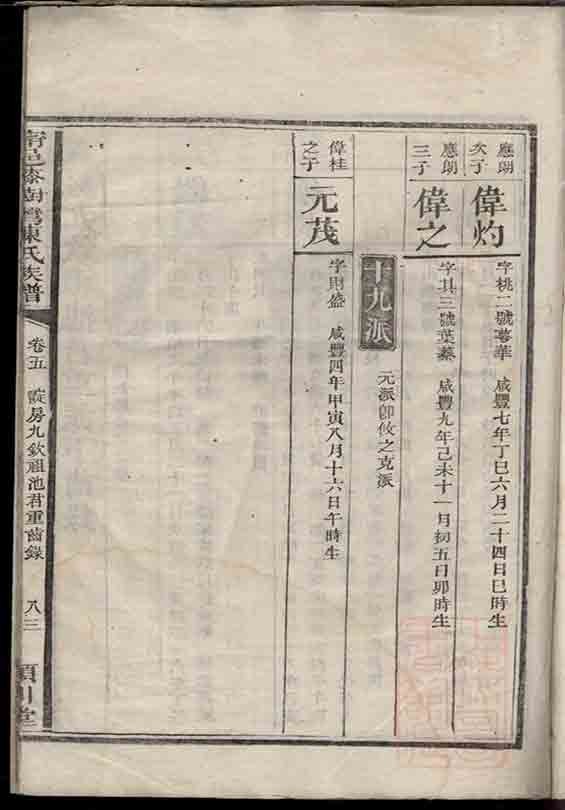 應朗
次子
偉灼
字桃二號蕚華 咸豐七年丁巳六月二十四日巳時生
應朗
三子
偉之
字其三號葉蓁 咸豐九年己未十一月初五日卯時生
十九派
元派卽攸之克派
偉桂
之子
元茂
字財盛 咸豐四年甲寅八月十六日午時生
邑漆樹灣陳氏族譜
卷五 房九欽祖池君重齒錄 八三
潁川堂